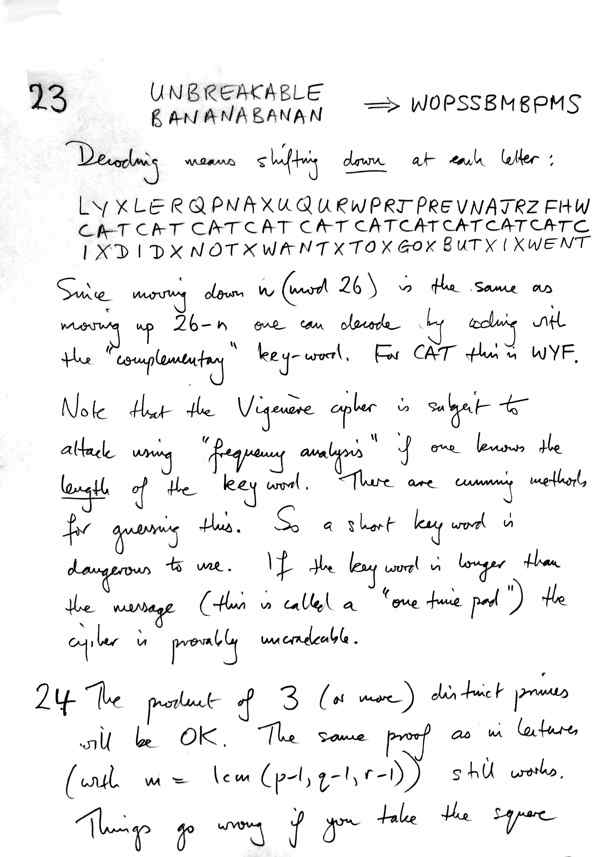 23 UNBREAKABLE
BANANABANAN ⇒ WOPSSBMBPMS
Decoding means shifting down at each letter :
LYXLERQPNAXUQURWPRJPREVNAJRZFHW
CATCATCATCATCATCATCATCATCATCATC
IXDIDXNOTXWANTXTOXGOXBUTXIXWENT
Since moving down n (mod 26) is the same as
moving up 26-n one can decode by coding with
the "complementary" key-word. For CAT this is WYF.
Note that the Vigenère cipher is subject to
attack using "frequency analysis" if one knows the
length of the key word. There are cunning methods
for guessing this. So a short key word is
dangerous to use. If the key word is longer than
the message (this is called a "one time pad") the
cipher is provably uncrackable.
24 The product of 3 (or more) distinct primes
will be OK. The same proof as in lectures
(with m = lcm (p-1, q-1, r-1)) still works.
Things go wrong if you take the square